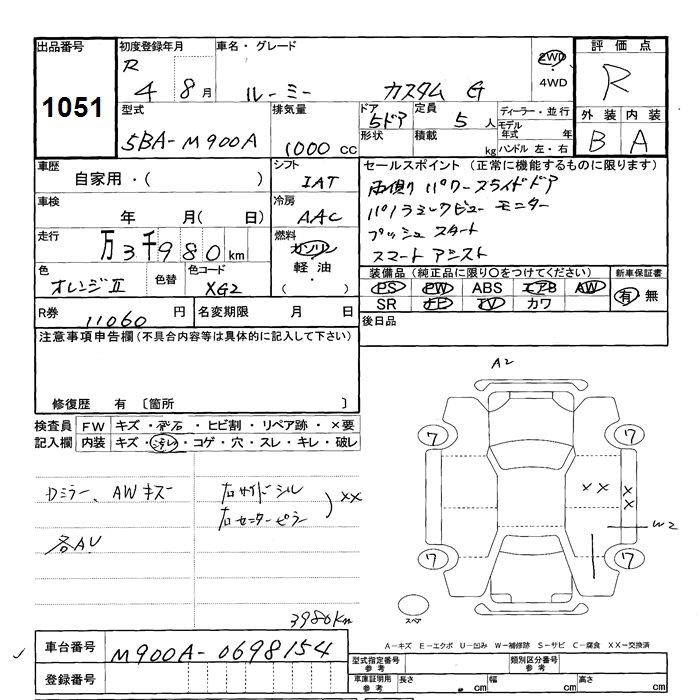 出品番号
1051
初度登録年月
R 4 8 月
車名・グレード
ルーミー カスタム G
2WD
・
4WD
評価点
R
外装 内装
B A
型式
5BA-M900A
排気量
1000 cc
ドア
5ドア
形状
定員
5 人
積載
kg
ディーラー・並行
モデル年式 年
ハンドル 左・右
車歴
自家用・( )
シフト
IAT
車検
年 月( 日)
冷房
AAC
走行
万 3 千 980 km
燃料
ガソリン
・
軽油
・
( )
色
オレンジⅡ
色替
色コード
XG2
R券
11060 円
名変期限 月 日
セールスポイント (正常に機能するものに限ります)
両側パワースライドドア
パノラミックビューモニター
プッシュスタート
スマートアシスト
装備品 (純正品に限り○をつけてください)
PS PW ABS エアB AW
SR ナビ TV カワ
新車保証書
有・無
後日品
注意事項申告欄 (不具合内容等は具体的に記入して下さい)
修復歴 有 〔箇所 〕
検査員 FW キズ・飛石・ヒビ割・リペア跡・×要
記入欄 内装 キズ・汚レ・コゲ・穴・スレ・キレ・破レ
Dミラー、AWキズ
各AU
右サイドシル
右センターピラー
) XX
3980km
A2
7
7
X X
X
X
W2
7
7
スペア
A-キズ E-エクボ U-凹み W-補修跡 S-サビ C-腐食 XX-交換済
車台番号 M900A-0698154
登録番号
型式指定番号
参考
類別区分番号
参考
車庫証明用
参考
長さ cm 幅 cm 高さ cm